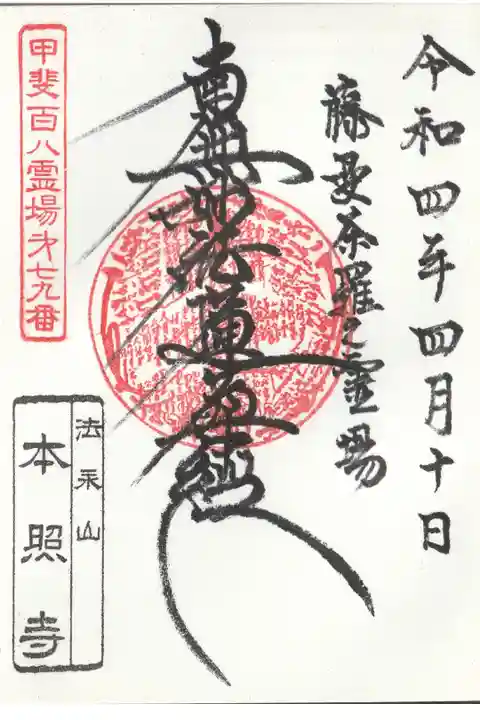 令和四年四月十日
藤曼荼羅之霊場
南無妙法蓮華経
甲斐百八霊場第七九番
法永山
本照寺